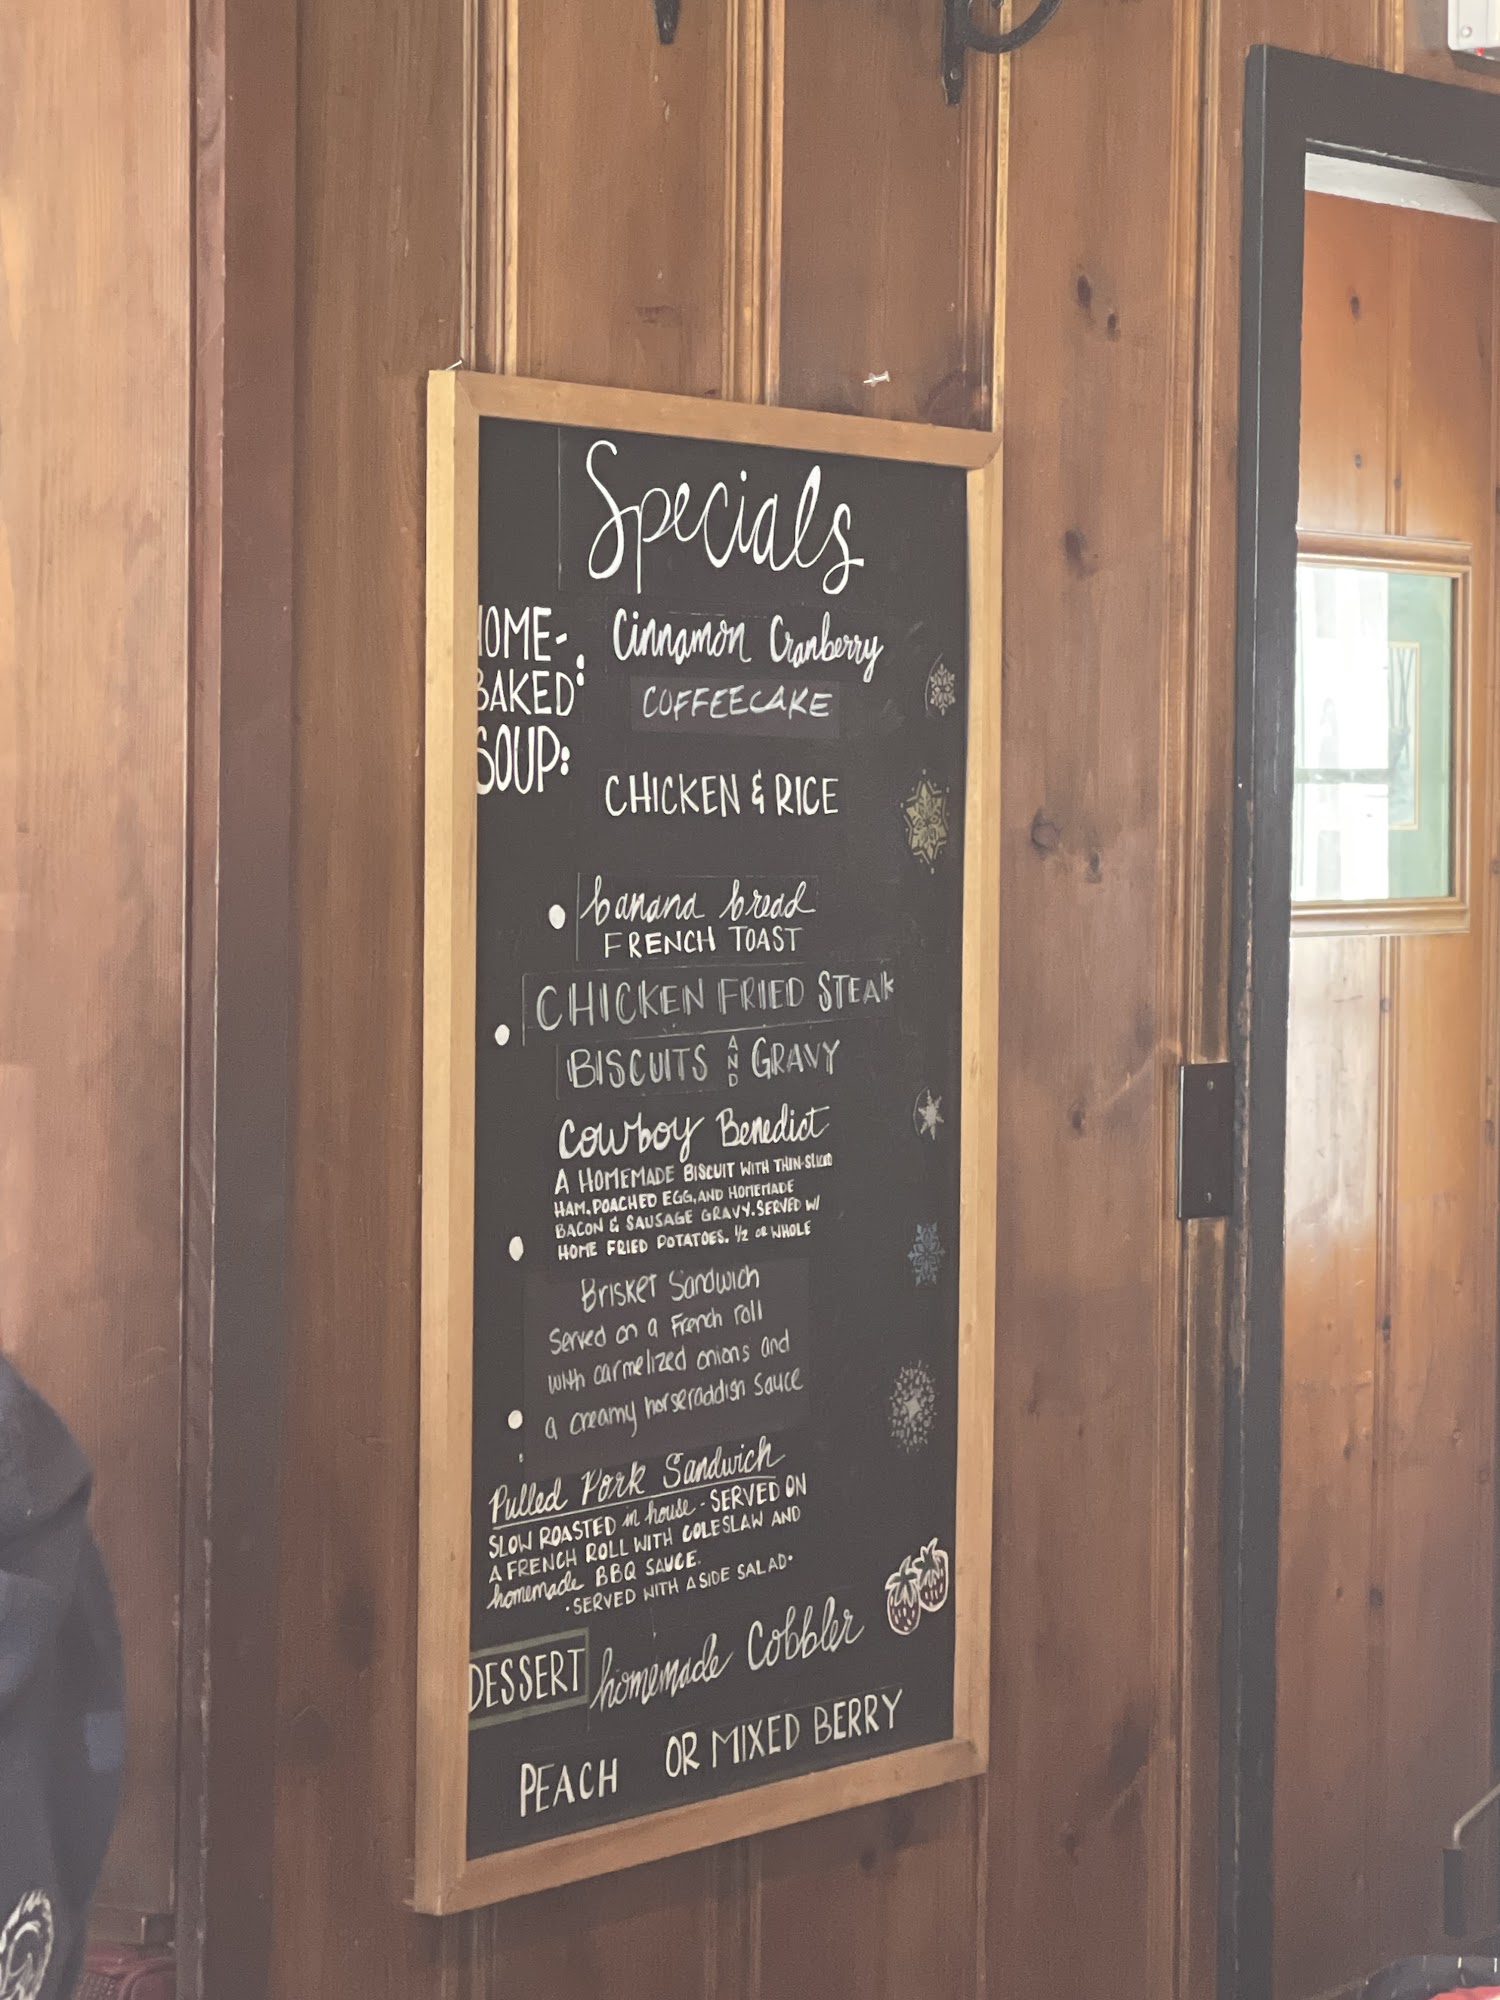 Specials
HOME-:
BAKED:
Cinnamon Cranberry
COFFEECAKE
SOUP:
CHICKEN & RICE
banana bread
FRENCH TOAST
CHICKEN FRIED STEAK
BISCUITS AND GRAVY
Cowboy Benedict
A HOMEMADE BISCUIT WITH THIN-SLICED
HAM, POACHED EGG, AND HOMEMADE
BACON & SAUSAGE GRAVY. SERVED W/
HOME FRIED POTATOES. 1/2 OR WHOLE
Brisket Sandwich
Served on a French roll
with carmelized onions and
a creamy horseraddish sauce
Pulled Pork Sandwich
SLOW ROASTED in house - SERVED ON
A FRENCH ROLL WITH COLESLAW AND
homemade BBQ SAUCE.
•SERVED WITH A SIDE SALAD•
DESSERT homemade Cobbler
PEACH OR MIXED BERRY